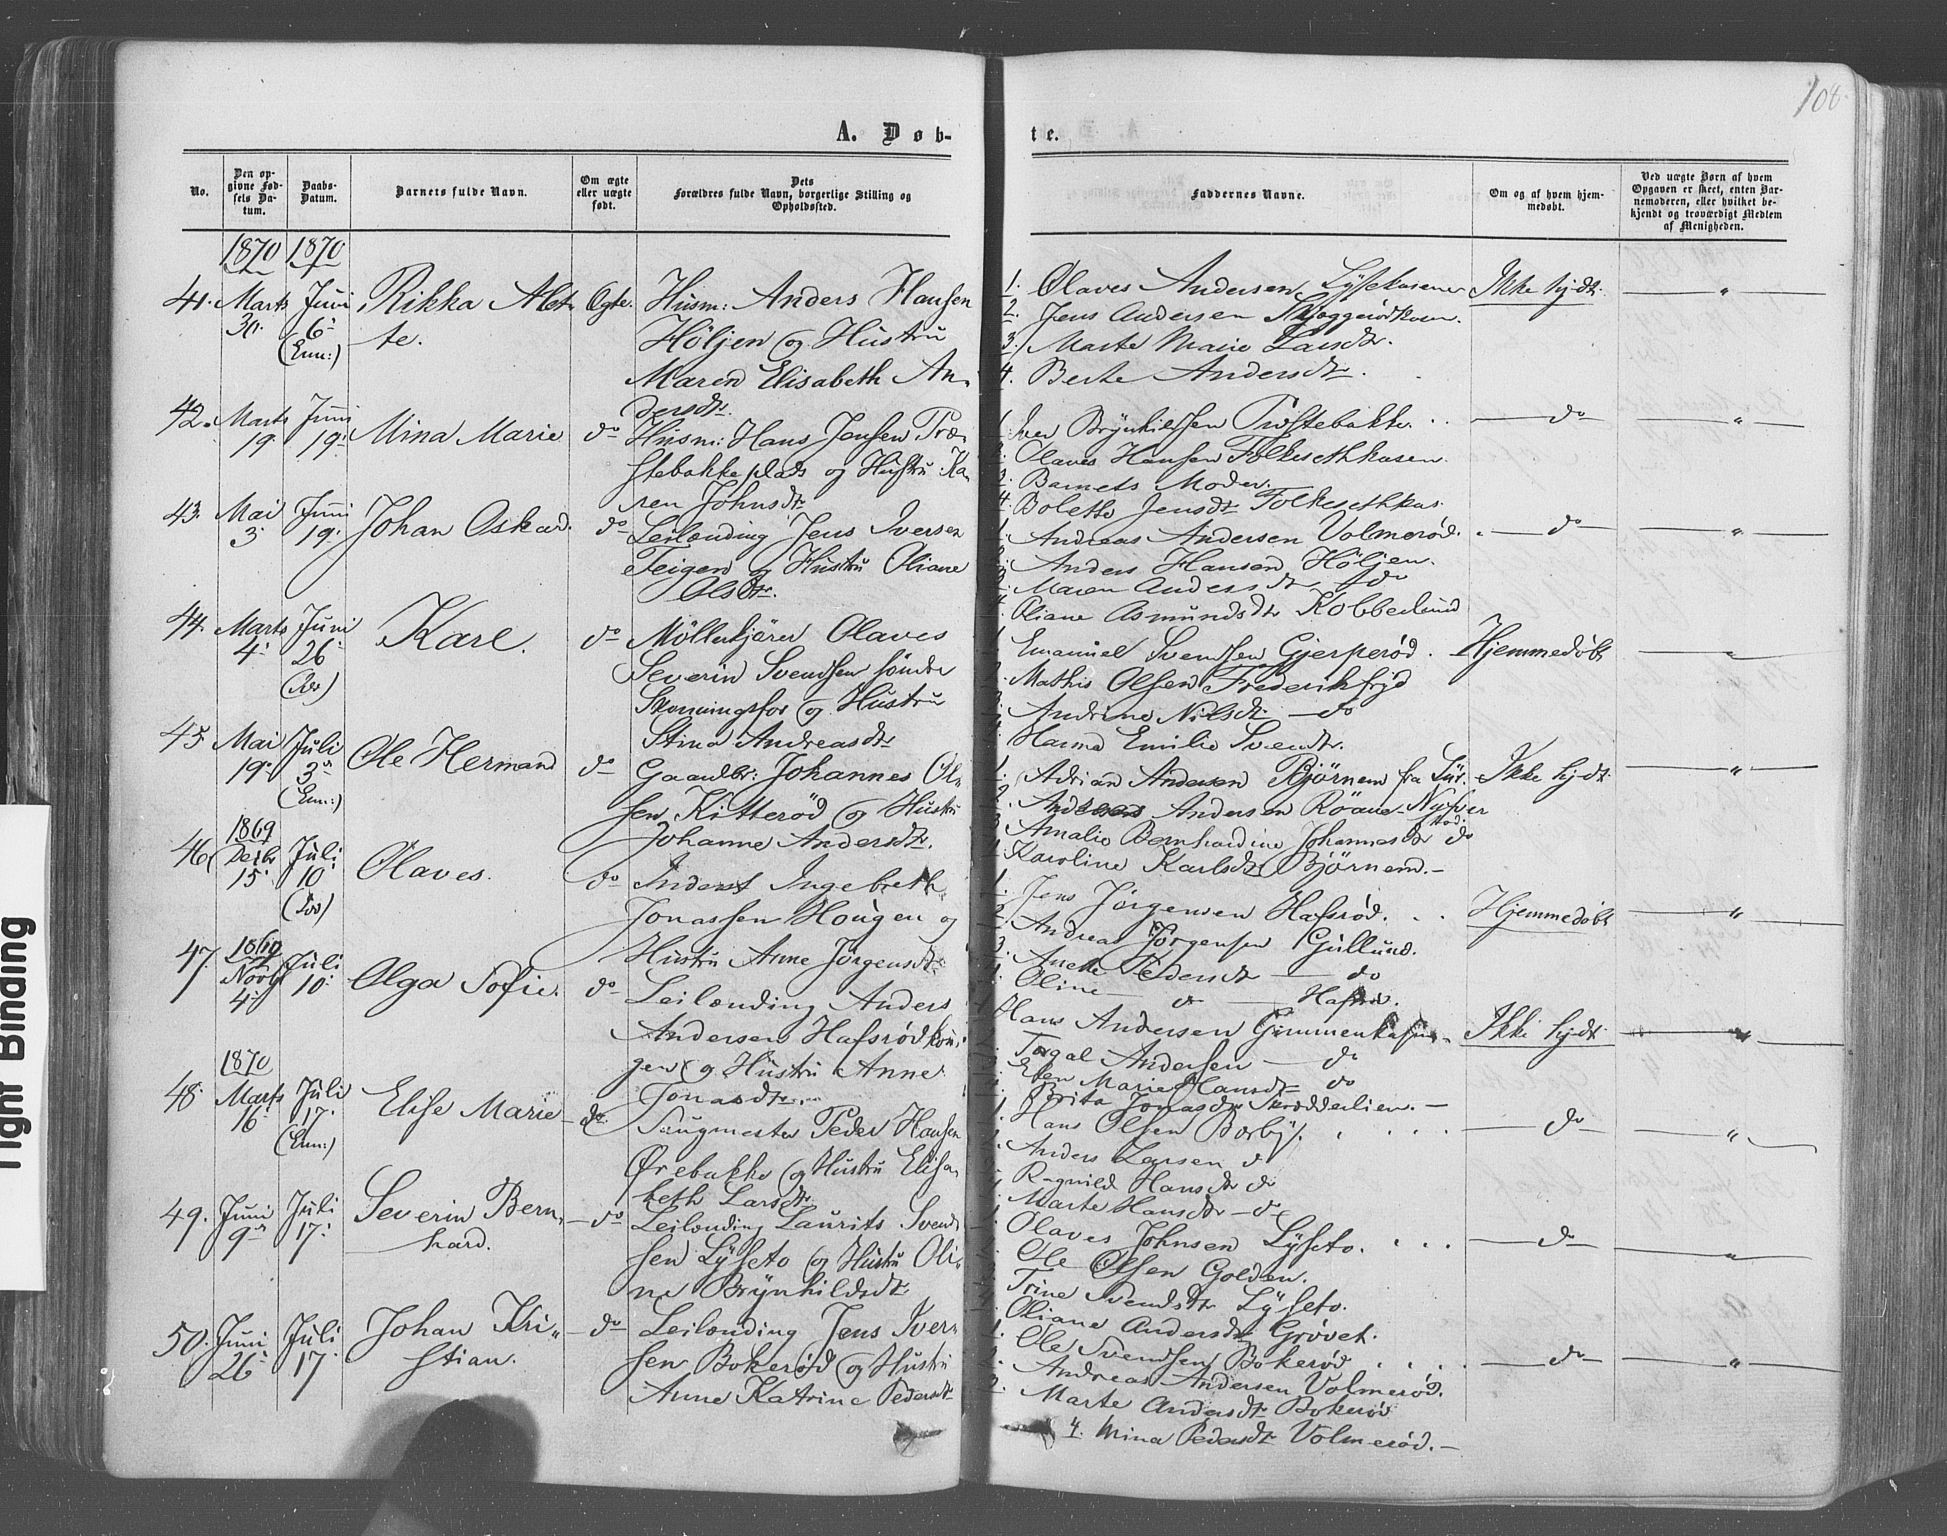 108
A. Døb-
te.
No.
Den op-
givne Fød-
sels Da-
tum.
Daabs-
Datum.
Barnets fulde Navn.
Om ægte
eller uægte
født.
Dets
Forældres fulde Navn, borgerlige Stilling og
Opholdssted.
Faddernes Navne.
Om og af hvem hjem-
medøbt.
Ved uægte Børn af hvem
Opgaven er skeet, enten Bar-
nemoderen, eller hvilket be-
kjendt og troværdigt Medlem
af Menigheden.
1870 1870
41. Marts 30. Juni 6. (Enn:)
Rikka Alet-
te.
Ægte.
Husm: Anders Hansen
Höljen og Hustru
Maren Elisabeth An-
dersdtr.
1. Olaves Andersen
2. Jens Andersen
3. Marte Marie Larsdtr.
4. Berte Andersdtr.
Ikke hjdt. "
42. Marts 19. Juni 19.
Mina Marie
do
Husm: Hans Jensen Træ-
stebakke plads og Hustru Ka-
ren Johnsdtr
1. Iver Brynildsen Træstebakke
2. Olaves Hansen Folkesethkasen
3. Barnets Moder.
4. Bolette Jensdtr Folkesethkas.
do "
43. Mai 3. Juni 19.
Johan Oskar.
do
Leilænding Jens Iversen
Teigen og Hustru Oliane
Olsdtr.
1. Andreas Andersen Volmerød.
2. Anders Hansen Höljen.
3. Maren Andersdtr do
4. Oliane Asmundsdtr Kobberlund
do "
44. Marts 4. Juni 26.
Karl.
do
Möllerkjører Olaves
Severin Svendsen søndre
Skonningsfos og Hustru
Stina Andreasdtr
1. Emanuel Svendsen Gjerperød.
2. Mathis Olsen Frederiksfryd
3. Andrine Nilsdtr do
Hanna Emilie Svendtr.
Hjemmedøbt "
45. Mai 19. Juli 3. (Enn:)
Ole Hermand
do
Gaardbr: Johannes Ol-
sen Kitterød og Hustru
Johanne Andersdtr.
1. Adrian Andersen Bjørnem fra
2. Andersen Röane
3. Amalie Bernhardine Johannesdtr do
4. Karoline Karlsdtr Bjørnem.
Ikke hjdt. "
1869
46. Decbr 15. Juli 10.
Olaves.
do
Inderst Ingebreth
Jonassen Hougen og
Hustru Anne Jörgensdtr
1. Jens Jörgensen Hafsrød.
2. Andreas Jörgensen Gullund.
3. Pedersdtr do
4. Oline do Hafsrød.
Hjemmedøbt "
1869
47. Novbr 4. Juli 10.
Olga Sofie.
do
Leilænding Anders
Andersen Hafsrødkou-
gen og Hustru Anne
Jonasdtr.
1. Hans Andersen
2. Torgal Andersen do
3. Elen Marie Hansdtr do
4. Berita Jonasdtr
Ikke hjdt. "
1870
48. Marts 16. Juli 17. (Enn:)
Elise Marie
do
Saugmester Peder Hansen
Ørebakke og Hustru Elisa-
beth Larsdtr
1. Hans Olsen Børby.
Anders Larsen do
Ragnild Hansdtr do
Marte Hansdtr do
do "
49. Juni 9. Juli 17.
Severin Bern-
hard.
do
Leilænding Laurits Svend-
sen Lyseto og Hustru Oli-
ne Brynhildsdtr
1. Olaves Johnsen Lyseto.
Ole Olsen Golden.
Trine Svendsdtr Lyseto.
Oliane Andersdtr Grövet.
do "
50. Juni 26. Juli 17.
Johan Kri-
stian.
do
Leilænding Jens Iver-
sen Bokerød og Hustru
Anne Katrine Pedersdtr
1. Ole Svendsen Bokerød
2. Andreas Andersen Volmerød.
3. Marte Andersdtr Bokerød
4. Mina Pedersdtr Volmerød.
do "
Tight Binding